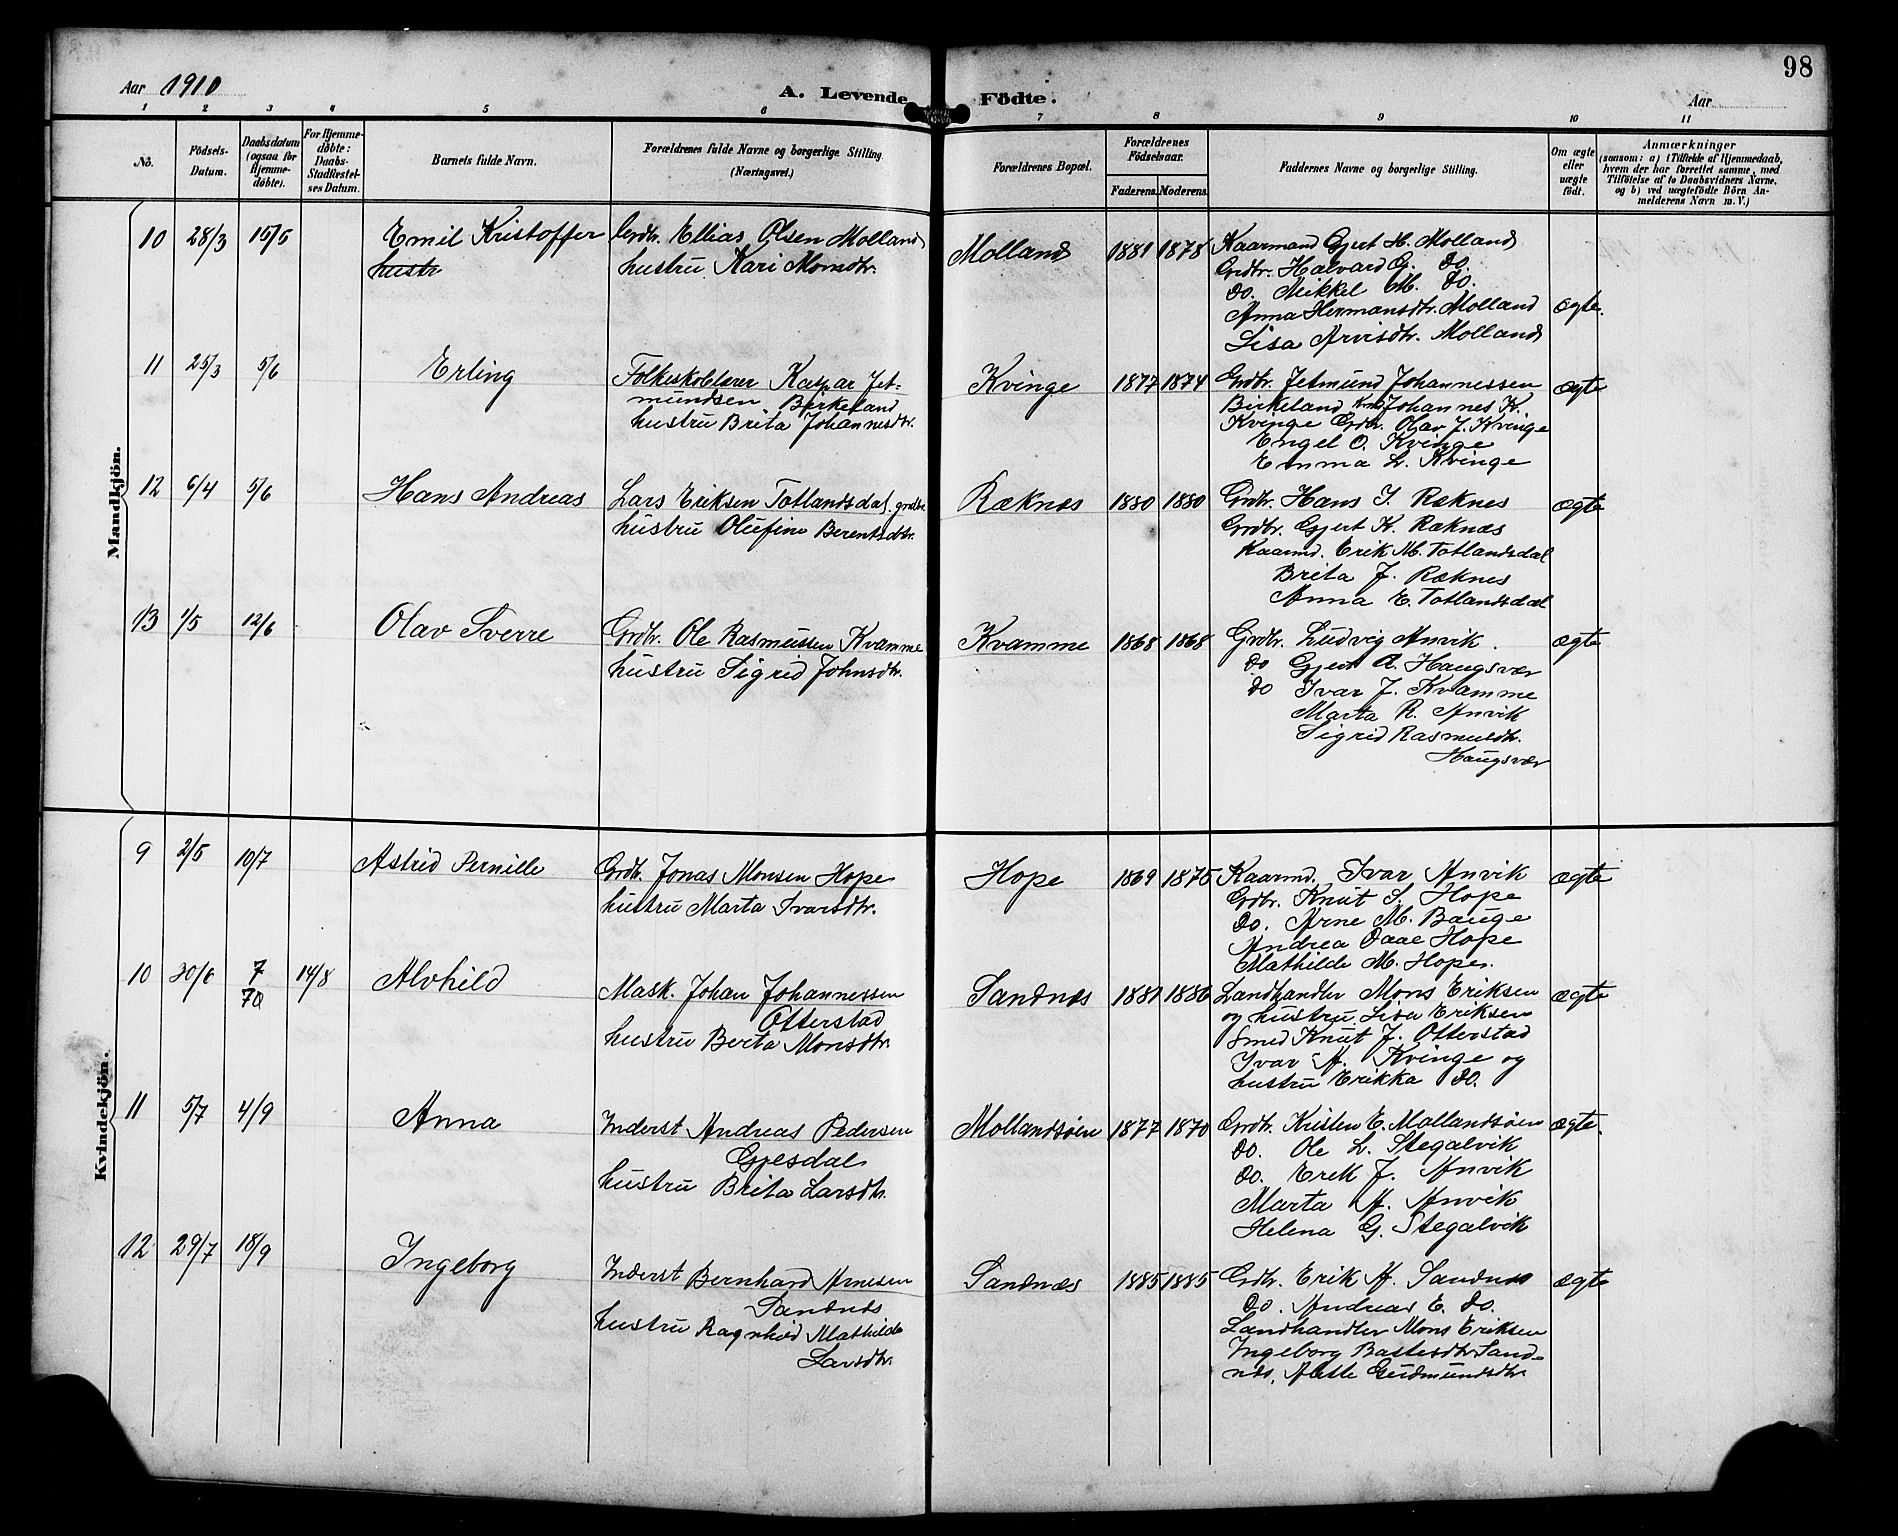 98
Aar 1910
A. Levende Födte.
Aar
1 2 3 4 5 6 7 8 9 10 11
No.
Födsels-Datum.
Daabsdatum (ogsaa for Hjemme-döbte).
For Hjemme-döbte: Daabs-Stadfæstel-ses Datum.
Barnets fulde Navn.
Forældrenes fulde Navne og borgerlige Stilling. (Næringsvei.)
Forældrenes Bopæl.
Forældrenes Födselsaar.
Faderens. Moderens.
Faddernes Navne og borgerlige Stilling.
Om ægte eller uægte födt.
Anmærkninger
(saasom: a) i Tilfælde af Hjemmedaab,
hvem der har forrettet samme, med
Tilföielse af to Daabsvidners Navne,
og b) ved uægtefödte Börn An-
melderens Navn m. V.)
Mandkjön.
10 28/3 15/5 Emil Kristoffer Grdbr. Ellias Olsen Molland Molland 1881 1878 Kaarmand Gjert H. Molland
hustr hustru Kari Monsdtr. Grdbr. Halvard G. Do.
Do. Mikkel M. Do.
Anna Hermansdtr. Molland ægte.
Lisa Arvisdtr. Molland
11 25/3 5/6 Erling Folkeskolelærer Kaspar Jet- Kvinge 1877 1874 Grdbr. Jetmund Johannessen ægte
mundsen Birkeland Birkeland Krmd Johannes K.
hustru Brita Johannesdtr. Kvinge Grdbr. Olav J. Kvinge
Engel O. Kvinge
Emma L. Kvinge
12 6/4 5/6 Hans Andreas Lars Eriksen Totlandsdal grdbr. Ræknes 1880 1880 Grdbr. Hans I. Ræknes ægte
hustru Olufine Berentsdtr. Grdbr. Gjert K. Ræknes
Kaarmd. Erik M. Totlandsdal
Brita J. Ræknes
Anna E. Totlandsdal
13 1/5 12/6 Olav Sverre Grdbr. Ole Rasmussen Kvamme Kvamme 1868 1868 Grdbr. Ludvig Anvik. ægte
hustru Sigrid Johnsdtr. Do Gjert A. Haugsvær
Do Ivar J. Kvamme
Marta R. Anvik
Sigrid Rasmusdtr.
Haugsvær
Kvindekjön.
9 2/5 10/7 Astrid Pernille Grdbr. Jonas Monsen Hope Hope 1869 1875 Kaarmd. Ivar Anvik ægte
hustru Marta Ivarsdtr. Grdbr. Knut S. Hope
Do. Arne M. Bauge
Andrea Daae Hope
Mathilde M. Hope.
10 30/6 7/7 14/8 Alvhild Mask. Johan Johannessen Sandnæs 1881 1886 Landhandler Mons Eriksen ægte
Otterstad og hustru Lisa Eriksen
hustru Berta Monsdtr. Smed Knut J. Otterstad
Ivar A. Kvinge og
hustru Erikka Do.
11 5/7 4/9 Anna Inderst Andreas Pedersen Mollandsøen 1877 1870 Grdbr. Kristen E. Mollandsøen ægte.
Gjesdal Do. Ole L. Stegalvik
hustru Brita Larsdtr. Do. Erik J. Anvik
Marta A. Anvik
Helena G. Stegalvik
12 29/7 18/9 Ingeborg Inderst Bernhard Arnesen Sandnæs 1885 1885 Grdbr. Erik A. Sandnæs ægte
Sandnæs Do. Andreas E. Do.
hustru Ragnhild Mathilde Landhandler Mons Eriksen
Larsdtr. Ingeborg Bastesdtr. Sand-
næs, Gudmundsdtr.